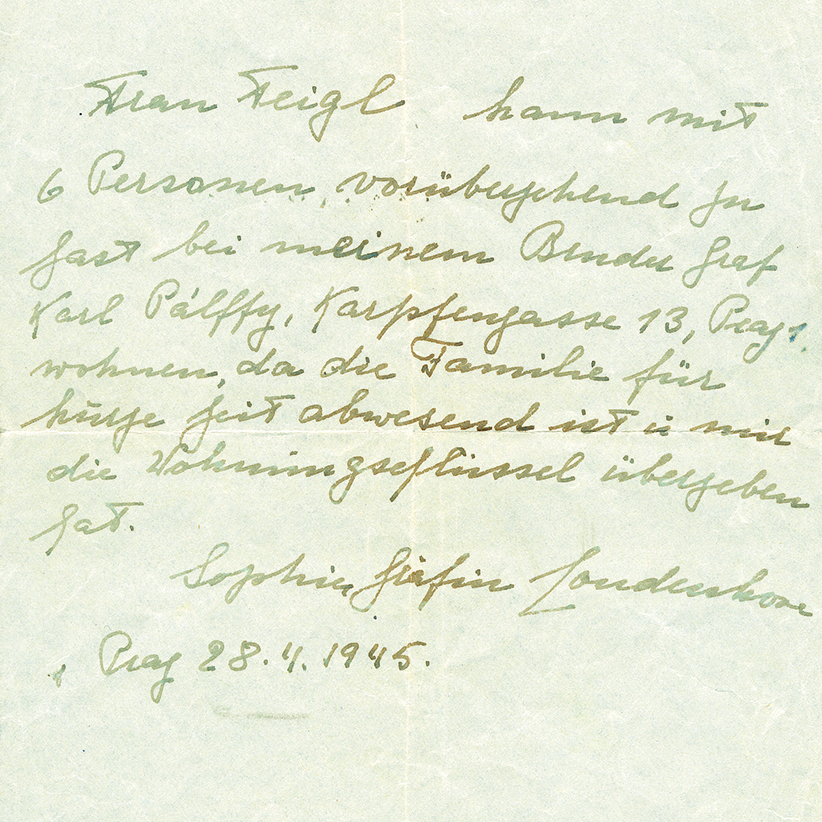 Frau Feigl kann mit
6 Personen, vorübergehend zu
Gast bei meinem Bruder Graf
Karl Pálffy, Karpfengasse 13, Prag 1.
wohnen, da die Familie für
kurze Zeit abwesend ist u mir
die Wohnungsschlüssel übergeben
hat.
Sophie Gräfin Coudenhove
Prag 28.4.1945.